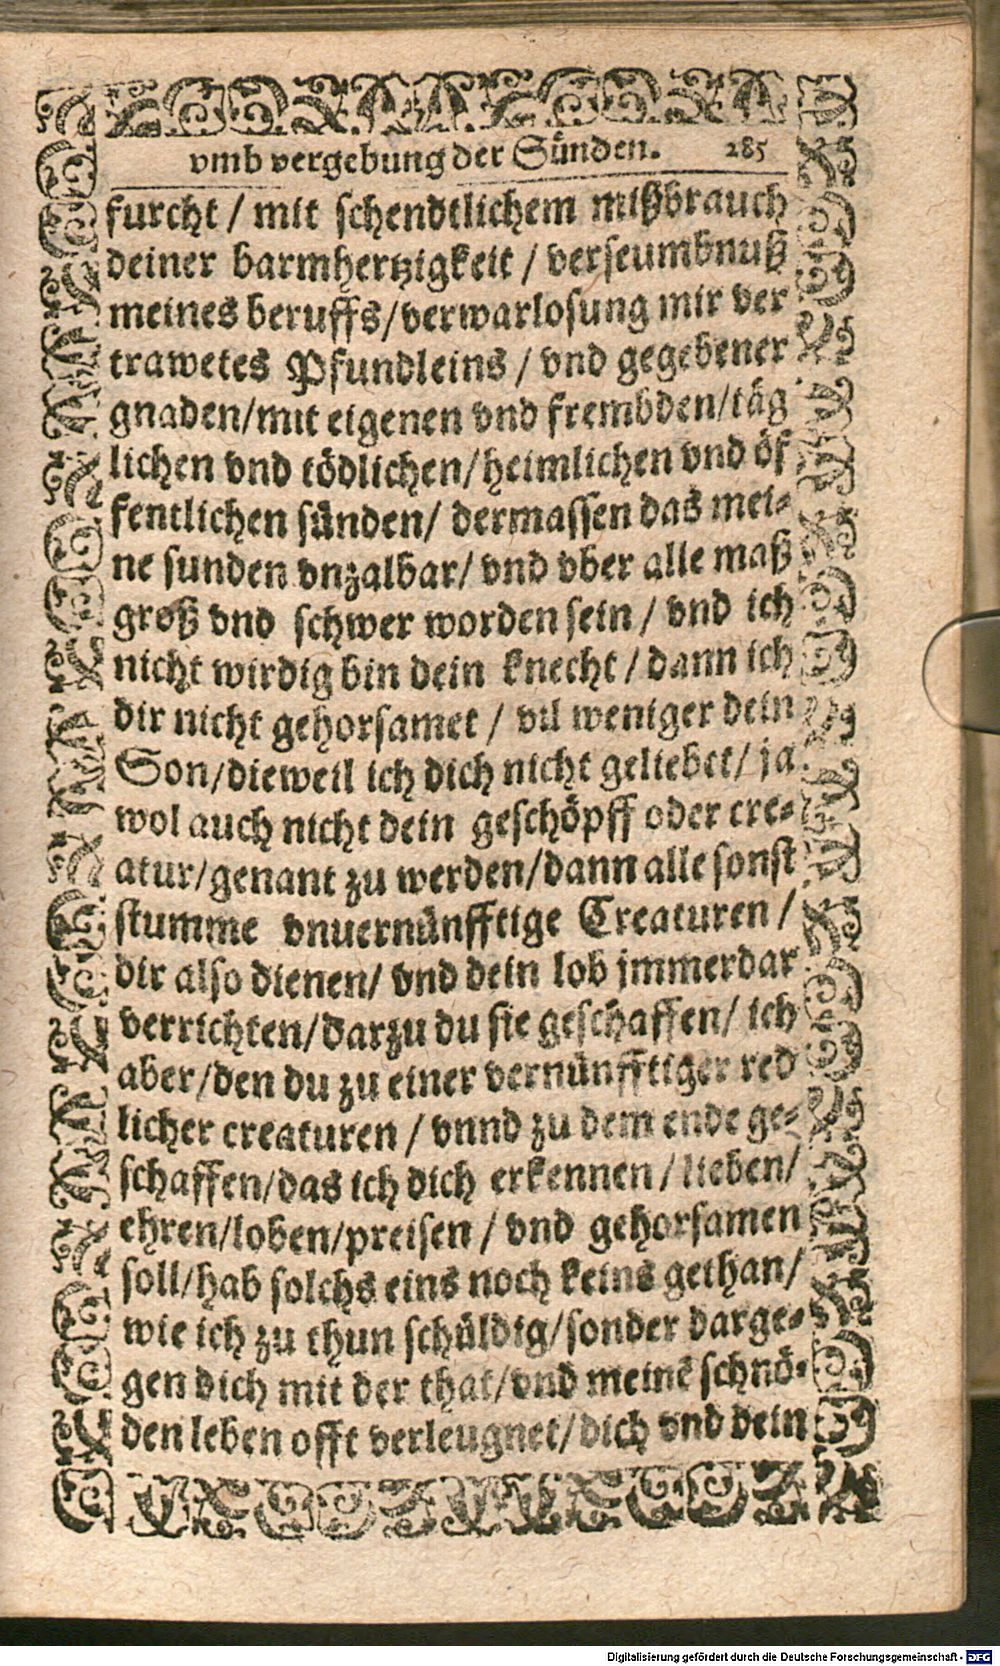 vmb vergebung der Sünden. 285
furcht / mit schendtlichem mißbrauch
deiner barmhertzigkeit / verseumbnuß
meines beruffs/verwarlosung mir ver
trawetes Pfundleins / vnd gegebener
gnaden/mit eigenen vnd frembden/täg
lichen vnd tödlichen/heimlichen vnd öf
fentlichen sünden/ dermassen das mei-
ne sunden vnzalbar/ vnd vber alle maß
groß vnd schwer worden sein / vnd ich
nicht wirdig bin dein knecht / dann ich
dir nicht gehorsamet / vil weniger dein
Son/dieweil ich dich nicht geliebet/ ja
wol auch nicht dein geschöpff oder cre-
atur/genant zu werden/dann alle sonst
stumme vnuernünfftige Creaturen /
dir also dienen/ vnd dein lob jmmerdar
verrichten/darzu du sie geschaffen/ ich
aber/den du zu einer vernünfftiger red
licher creaturen / vnnd zu dem ende ge-
schaffen/das ich dich erkennen / lieben/
ehren/loben/preisen / vnd gehorsamen
soll/hab solchs eins noch keins gethan/
wie ich zu thun schüldig/sonder darge-
gen dich mit der that/vnd meine schnö-
den leben offt verleugnet/dich vnd dein
Digitalisierung gefördert durch die Deutsche Forschungsgemeinschaft - DFG